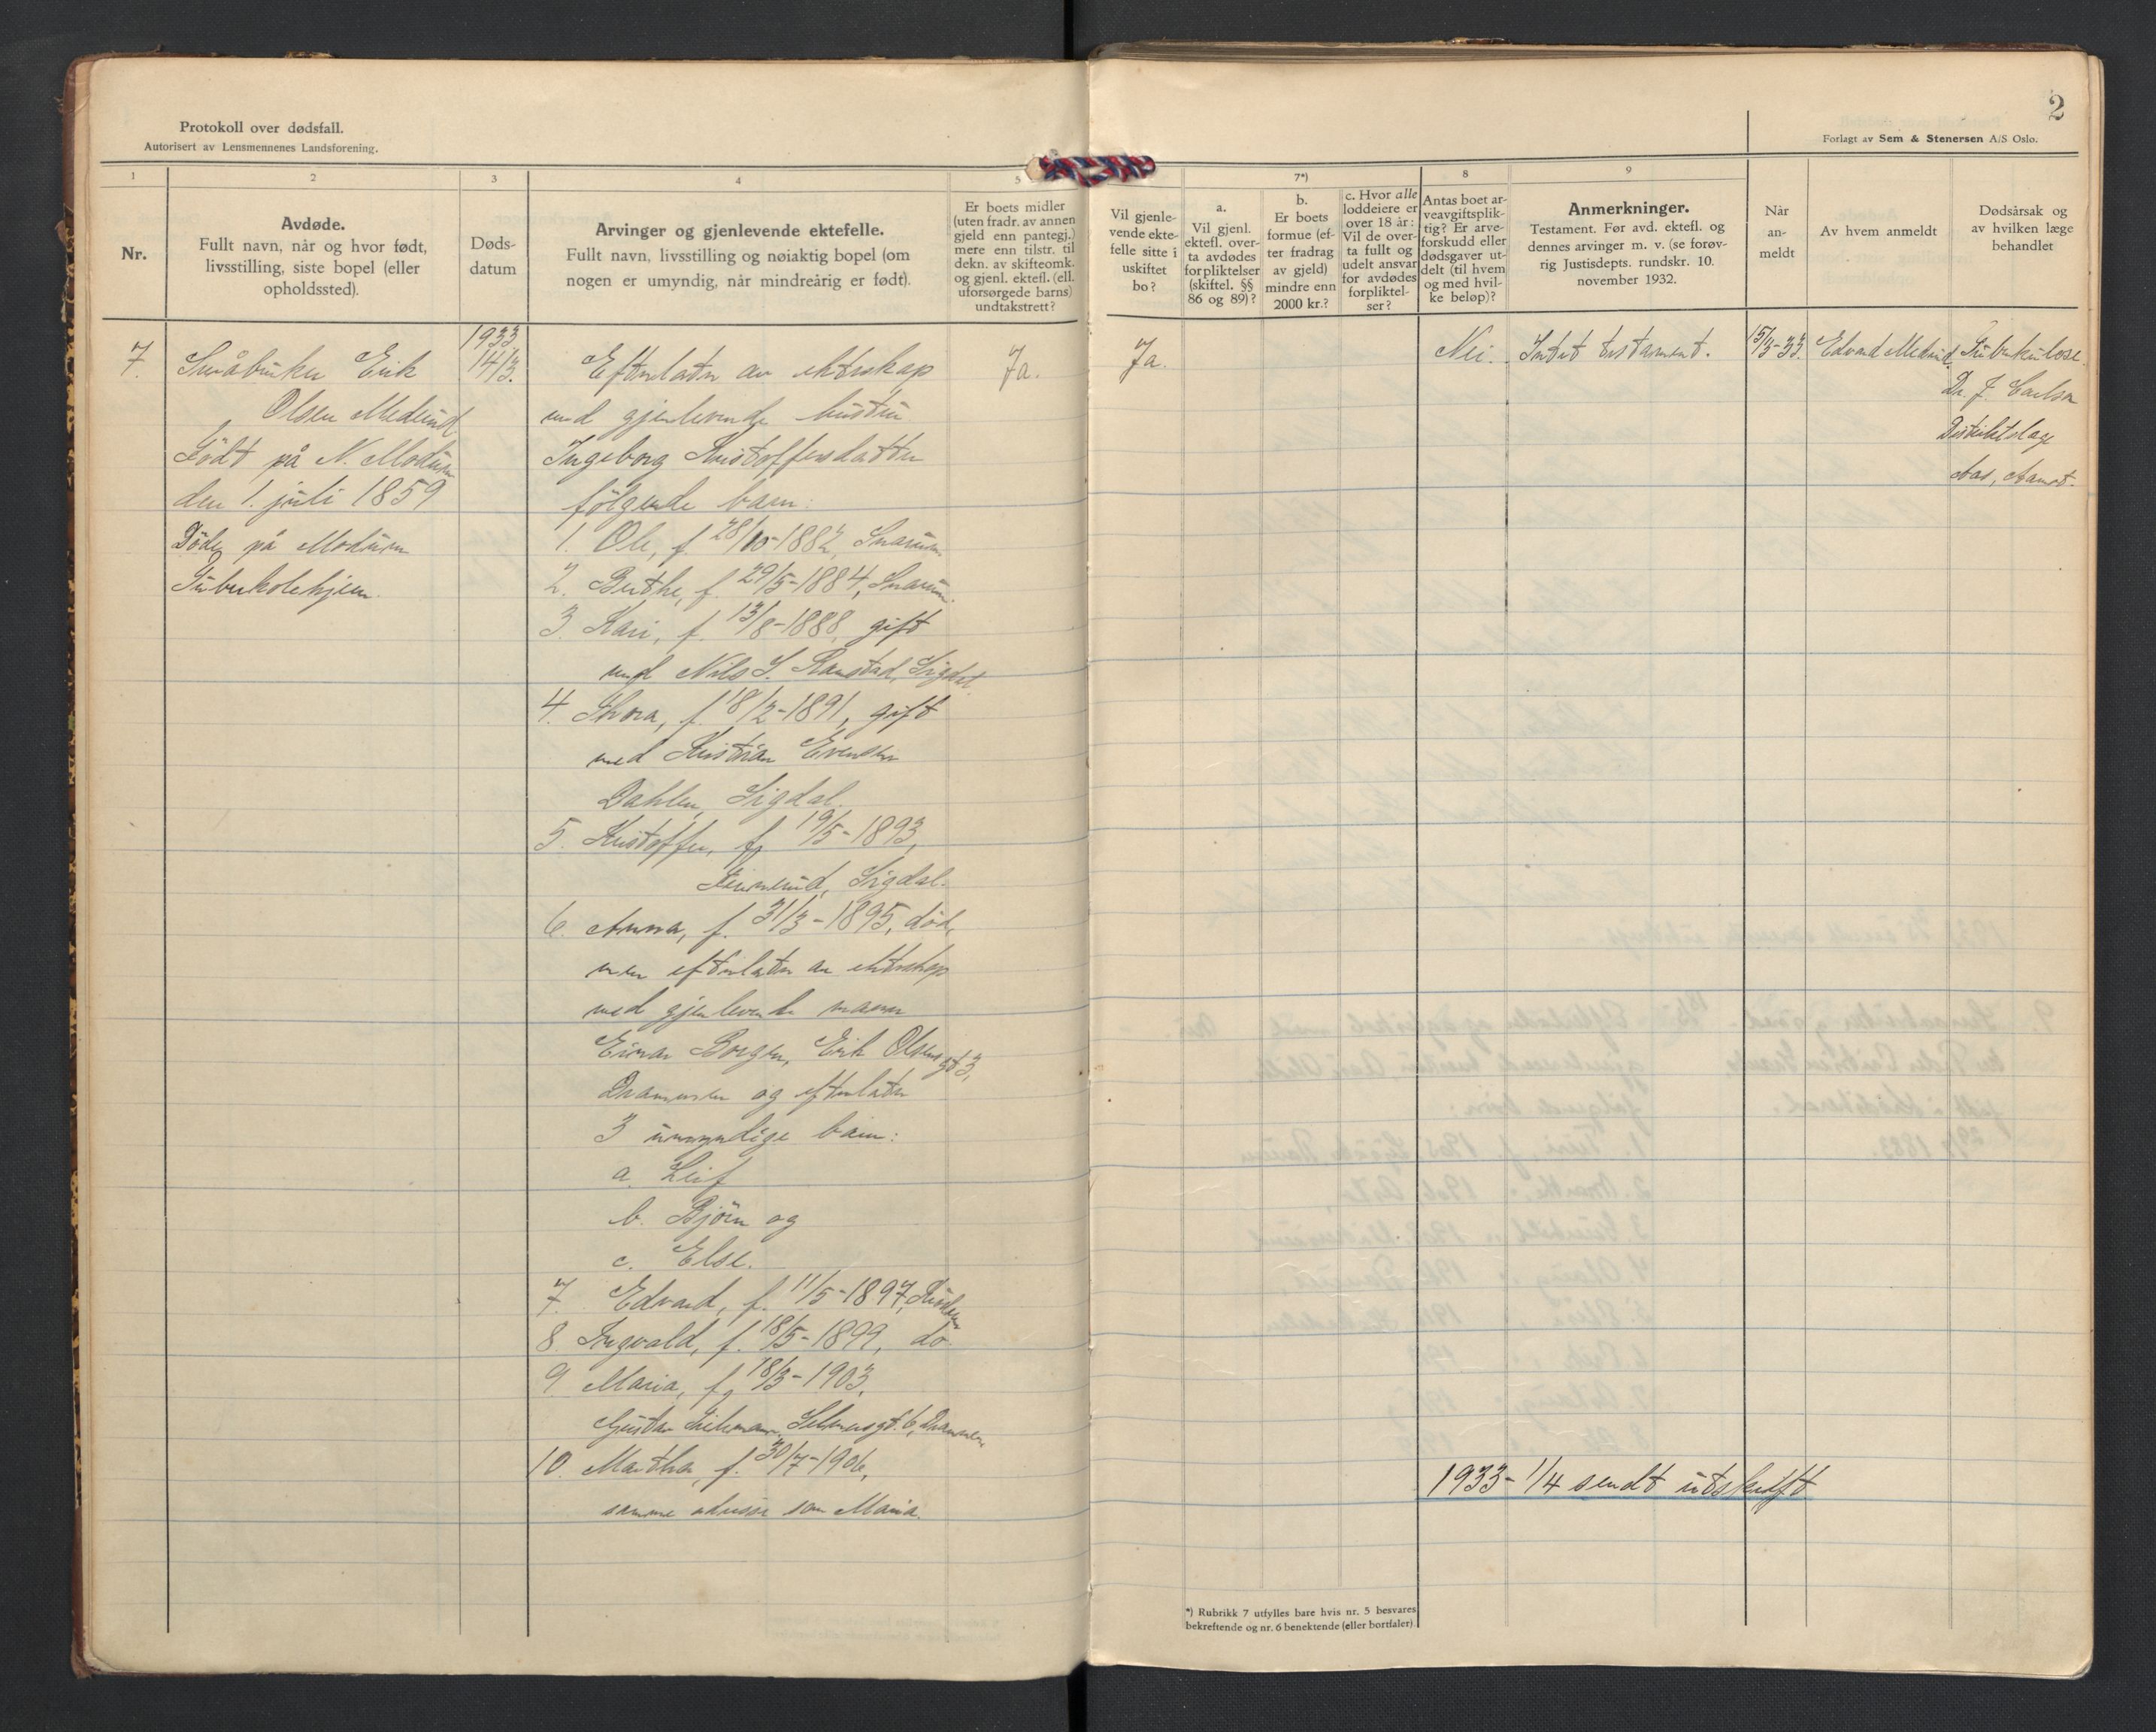 Protokoll over dødsfall.
Autorisert av Lensmennenes Landsforening.
2
Forlagt av Sem & Stenersen A/S Oslo.
1
2
3
4
5
7*)
8
9
Nr.
Avdøde.
Fullt navn, når og hvor født,
livsstilling, siste bopel (eller
opholdssted).
Døds-
datum
Arvinger og gjenlevende ektefelle.
Fullt navn, livsstilling og nøiaktig bopel (om
nogen er umyndig, når mindreårig er født).
Er boets midler
(uten fradr. av annen
gjeld enn pantegj.)
mere enn tilstr. til
dekn. av skifteomk.
og gjenl. ektefl. (ell.
uforsørgede barns)
undtakstrett?
Vil gjenle-
vende ekte-
felle sitte i
uskiftet
bo?
a.
Vil gjenl.
ektefl. over-
ta avdødes
forpliktelser
(skiftel. §§
86 og 89)?
b.
Er boets
formue (ef-
ter fradrag
av gjeld)
mindre enn
2000 kr.?
c. Hvor alle
loddeiere er
over 18 år:
Vil de over-
ta fullt og
udelt ansvar
for avdødes
forpliktel-
ser?
Antas boet ar-
veavgiftsplik-
tig? Er arve-
forskudd eller
dødsgaver ut-
delt (til hvem
og med hvil-
ke beløp)?
Anmerkninger.
Testament. Før avd. ektefl. og
dennes arvinger m. v. (se forøv-
rig Justisdepts. rundskr. 10.
november 1932.
Når
an-
meldt
Av hvem anmeldt
Dødsårsak og
av hvilken læge
behandlet
7.
Småbruker Erik
Olsen Medrud
Født på N. Modum
den 1. juli 1859
Døde på Modum
Tuberkolehjem.
1933
14/3.
Efterlater av ekteskap
med gjenlevende hustru
Ingeborg Kristoffersdatter
følgende barn:
1. Ole, f. 28/10-1882, Snarum
2. Berthe, f. 29/5-1884, Snarum.
3. Kari, f. 13/8-1888, gift
med Nils S. Ramstad, Sigdal
4. Thora, f. 18/2-1891, gift
med Kristian Evensen
Dahlen, Sigdal.
5. Kristoffer, f. 19/5-1893,
Sigdal.
6. Anna, f. 31/3-1895, død,
men efterlater av ekteskap
med gjenlevende mann
Einar Borgen, Erik Olsens gt 3,
Drammen og efterlater
3 umyndige barn:
a. Leif
b. Bjørn og
c. Else.
7. Edvard, f. 11/5-1897,
8. Ingvald, f. 18/5-1899, do.
9 Maria, f. 18/3-1903,
Gustav 6, Drammen
10. Martha, f. 30/7-1906,
samme adresse som Maria.
Ja.
Ja.
Nei.
Intet testament.
15/3-33.
Edvard Medrud
Tuberkulose
Dr. J. Carlsen
Distriktslæge
Aas, Aamot.
1933- 1/4 sendt utskrift
*) Rubrikk 7 utfylles bare hvis nr. 5 besvares
bekreftende og nr. 6 benektende (eller bortfaler).